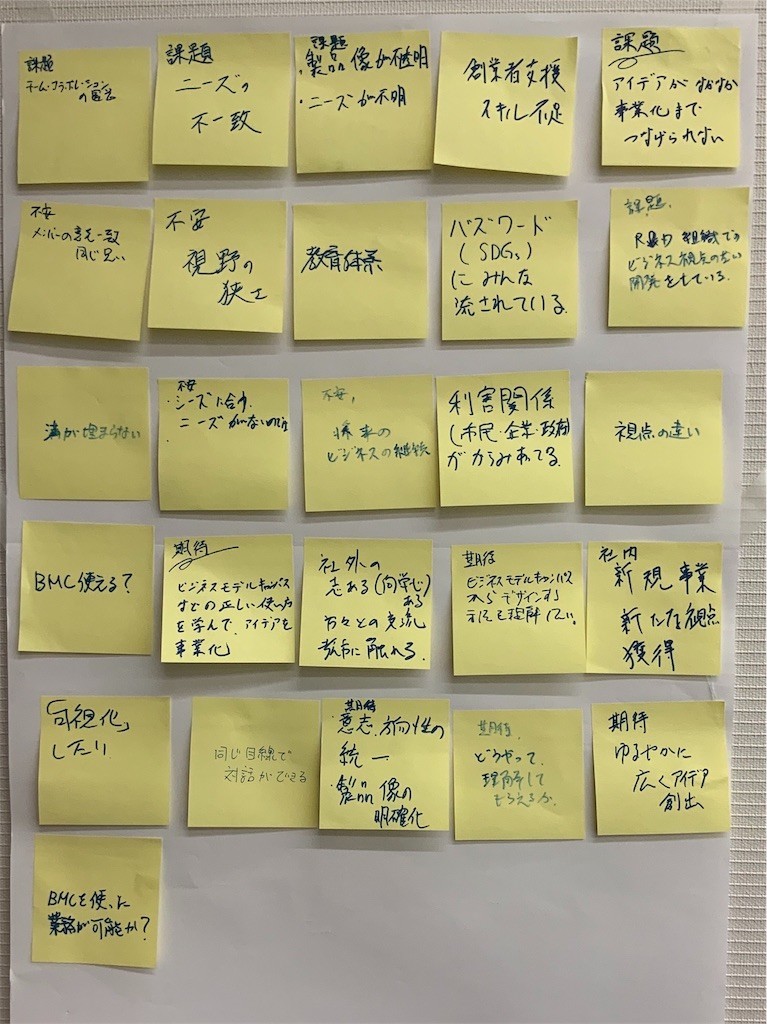 課題
チーム・コラボレーション
の
課題
ニーズの
不一致
課題
・製品像が不透明
・ニーズが不明
創業者支援
スキル不足
課題
アイデアがなかなか
事業化まで
つなげられない
不安
メンバーの意志一致
同じ思い
不安
視野の
狭さ
教育体系
バズワード
(SDGs)
にみんな
流されている
課題.
組織での
ビジネス視点のない
開発をしている.
溝が埋まらない
不安
・シーズに合う
ニーズがないのでは
不安.
将来の
ビジネスの継続
利害関係
(市民・企業・政府)
がからみあってる.
視点の違い
BMC使える?
期待
ビジネスモデルキャンバス
などの正しい使い方
を学んで、アイデアを
事業化
社外の
志ある(向学心)
ある
方々との交流
考え方に触れる.
期待
ビジネスモデルキャンバス
からデザインする
方法を理解したい.
社内
新規事業
新たな視点
獲得
「可視化」
したい
同じ目線で
対話ができる
期待
・意志、方向性の
統一
・製品像の
明確化
期待.
どうやって、
理解して
もらえるか.
期待
ゆるやかに
広くアイデア
創出
BMCを使った
業務が可能か?